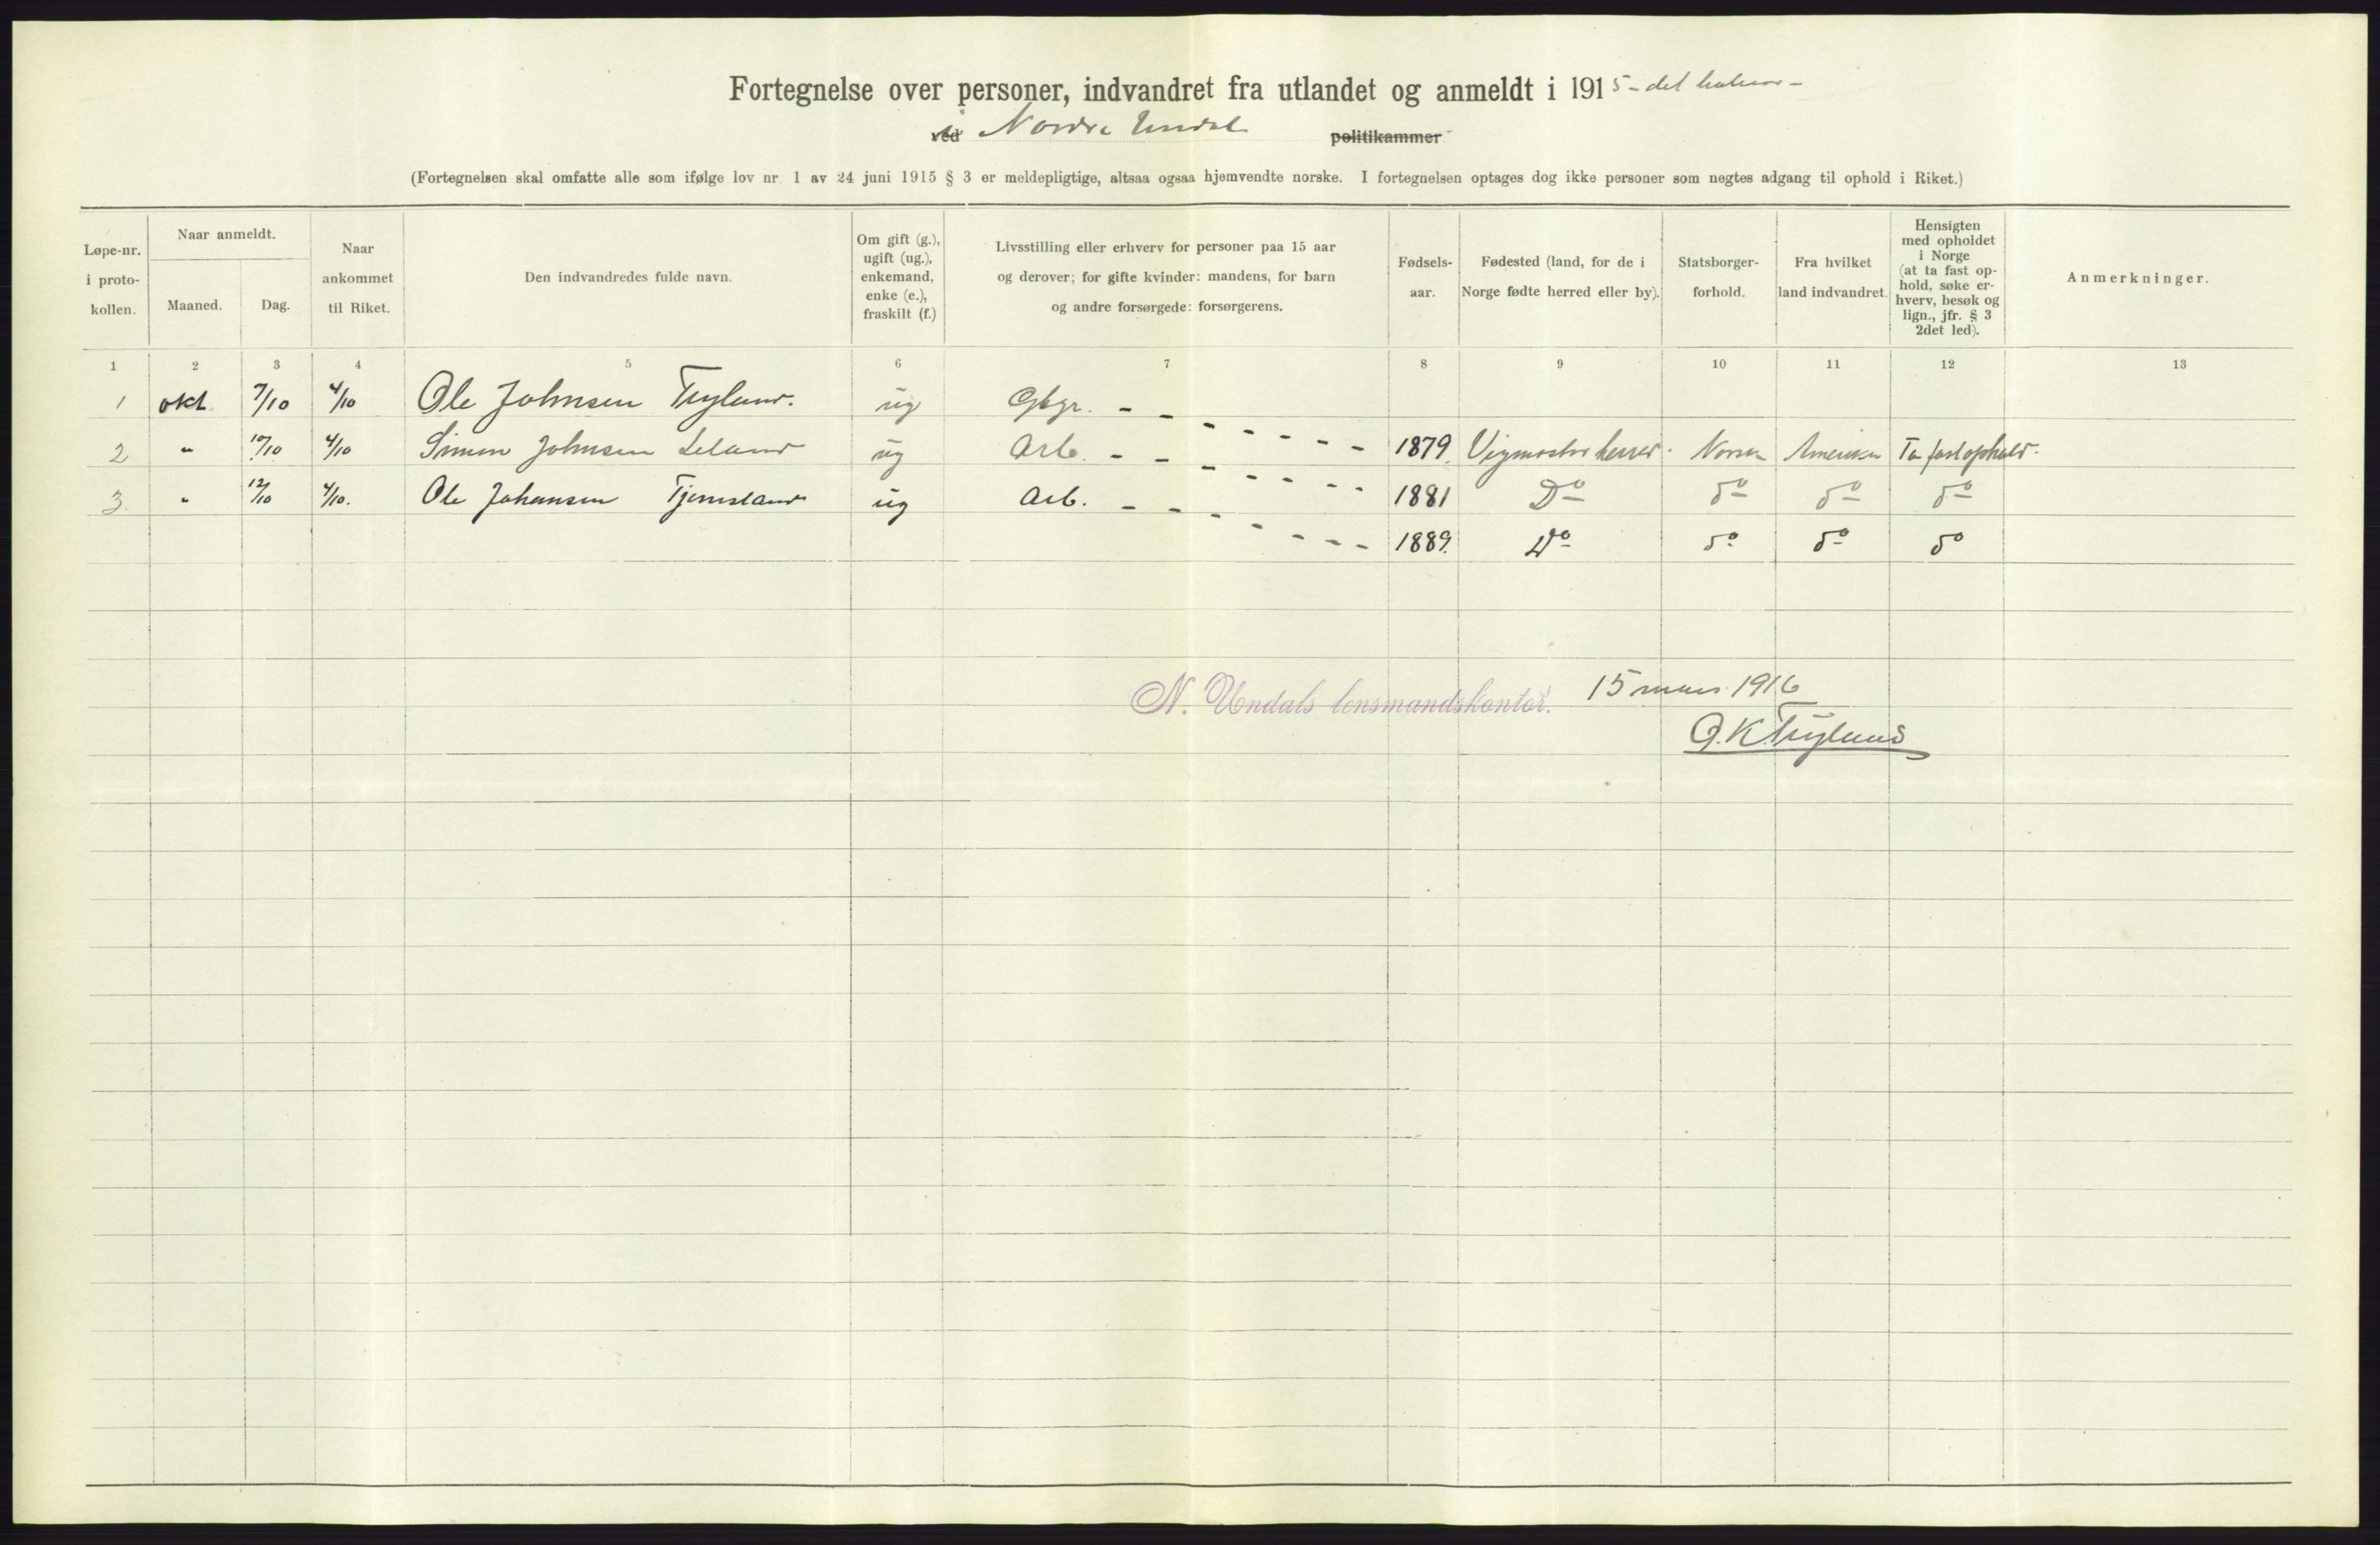 Fortegnelse over personer, indvandret fra utlandet og anmeldt i 1915 - det
ved i Nordre Undal politikammer
(Fortegnelsen skal omfatte alle som ifølge lov nr. 1 av 24 juni 1915 § 3 er meldepligtige, altsaa ogsaa hjemvendte norske. I fortegnelsen optages dog ikke personer som negtes adgang til ophold i Riket.)
Løpe-nr. i proto-kollen.
Naar anmeldt.
Maaned.
Dag.
Naar ankommet til Riket.
Den indvandredes fulde navn.
Om gift (g.), ugift (ug.), enkemand, enke (e.), fraskilt (f.)
Livsstilling eller erhverv for personer paa 15 aar og derover; for gifte kvinder: mandens, for barn og andre forsørgede: forsørgerens.
Fødsels-aar.
Fødested (land, for de i Norge fødte herred eller by).
Statsborger-forhold.
Fra hvilket land indvandret.
Hensigten med opholdet i Norge (at ta fast op-hold, søke er-hverv, besøk og lign., jfr. § 3 2det led).
Anmerkninger.
1 2 3 4 5 6 7 8 9 10 11 12 13
1 okt. 7/10 4/10 Ole Johnsen Tryland. ug Gbgr. - - - - - - - -
2 " 10/10 4/10 Simon Johnsen Leland ug Arb. - - - - - - - - 1879. Vigmostad herred. Norsk Amerika Ta fast ophold.
3. " 12/10 4/10. Ole Johansen Tjomsland ug Arb. - - - - - - - 1881 Do do do do
1889. Do do do do
N. Undals lensmandskontor. 15 mars 1916
O.K. Tryland